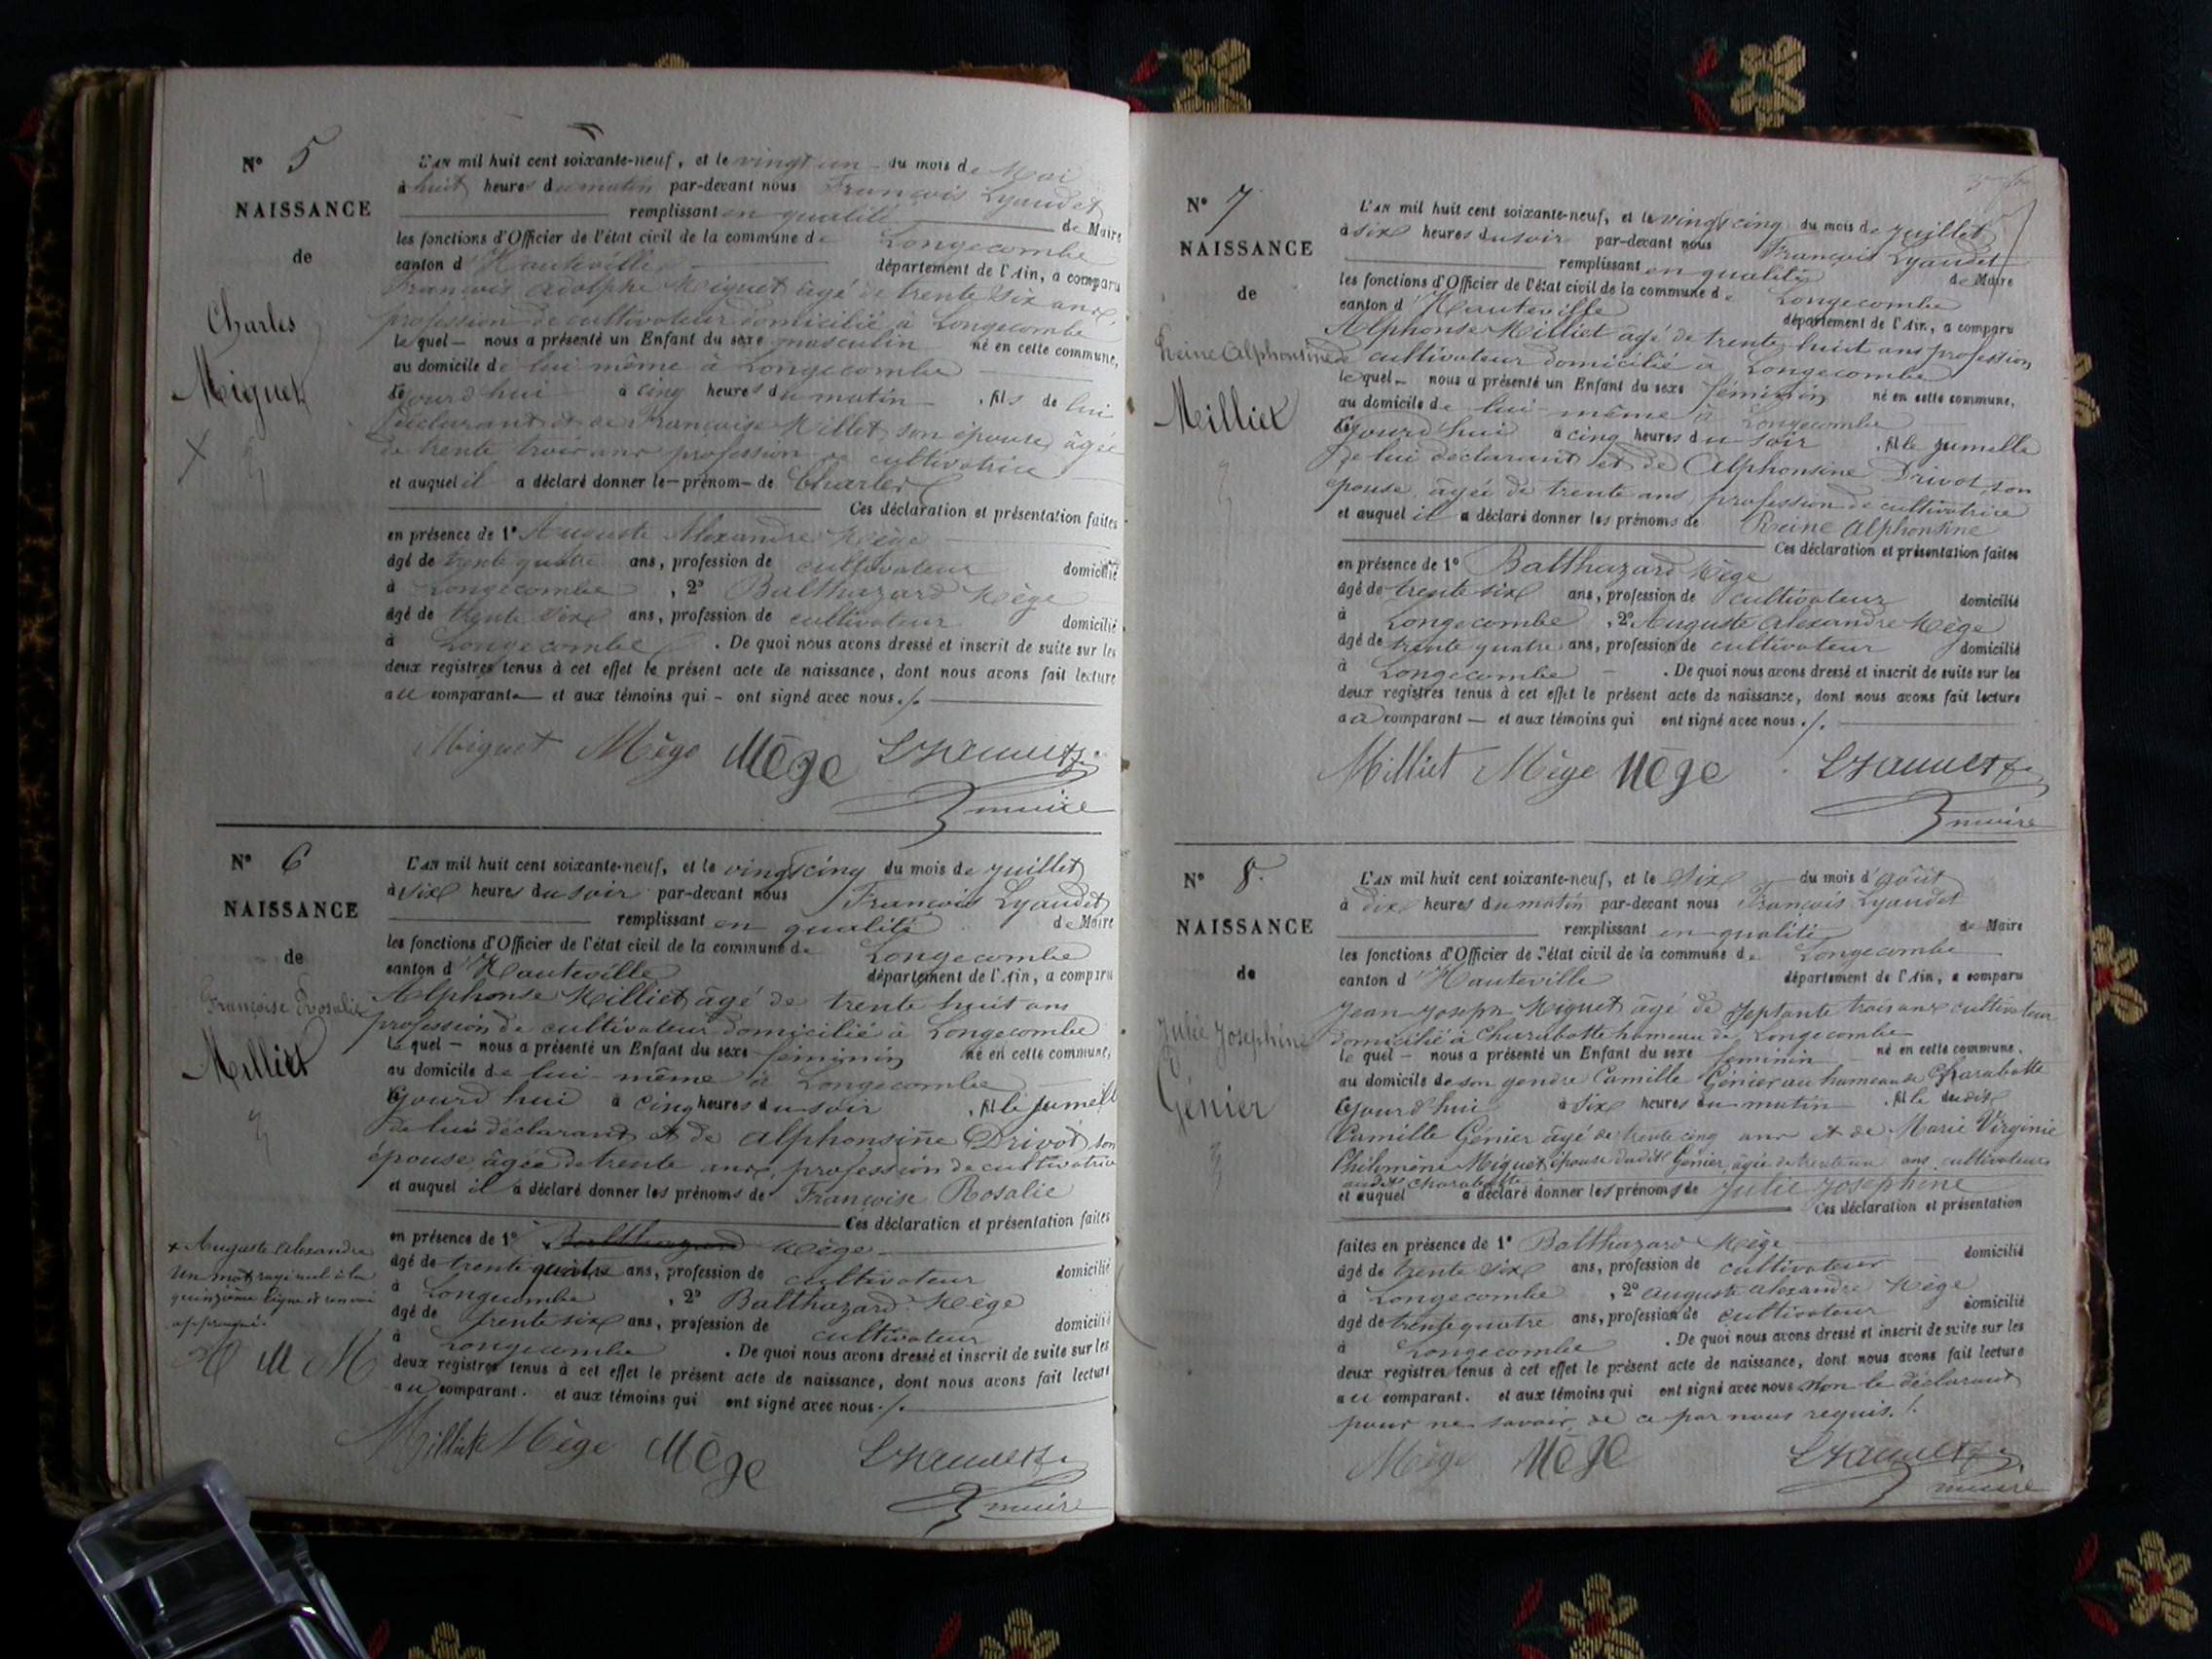 N° 5
NAISSANCE
de
Charles
Miguet
L'AN mil huit cent soixante-neuf, et le vingt un du mois de Mai
à huit heures du matin par-devant nous François Lyaudet
remplissant en qualité de Maire
les fonctions d'Officier de l'état civil de la commune de Longecombe
canton d'Hauteville département de l'Ain, a comparu
François Adolphe Miguet âgé de trente six ans,
profession de cultivateur domicilié à Longecombe
le quel — nous a présenté un Enfant du sexe masculin né en cette commune,
au domicile de lui même à Longecombe
ce jourd'hui à cinq heures du matin , fils de lui
déclarant et de Françoise Millet son épouse, âgée
de trente trois ans profession de cultivatrice
et auquel il a déclaré donner le — prénom — de Charles
Ces déclaration et présentation faites
en présence de 1° Auguste Alexandre Mège
âgé de trente quatre ans, profession de cultivateur domicilié
à Longecombe , 2° Balthazard Mège
âgé de trente six ans, profession de cultivateur domicilié
à Longecombe . De quoi nous avons dressé et inscrit de suite sur les
deux registres tenus à cet effet le présent acte de naissance, dont nous avons fait lecture
au comparant — et aux témoins qui — ont signé avec nous ./.
Miguet Mège Mège Lyaudet
maire
N° 6
NAISSANCE
de
Françoise Rosalie
Milliet
L'AN mil huit cent soixante-neuf, et le vingt cinq du mois de juillet
à six heures du soir par-devant nous François Lyaudet
remplissant en qualité de Maire
les fonctions d'Officier de l'état civil de la commune de Longecombe
canton d'Hauteville département de l'Ain, a comparu
Alphonse Milliet âgé de trente huit ans
profession de cultivateur domicilié à Longecombe
le quel — nous a présenté un Enfant du sexe féminin né en cette commune,
au domicile de lui-même à Longecombe
ce jourd'hui à cinq heures du soir , fille jumelle
de lui déclarant et de Alphonsine Drivot son
épouse âgée de trente ans, profession de cultivatrice
et auquel il a déclaré donner les prénoms de Françoise Rosalie
Ces déclaration et présentation faites
en présence de 1° Balthazard Mège
âgé de trente quatre ans, profession de cultivateur domicilié
à Longecombe , 2° Balthazard Mège
âgé de trente six ans, profession de cultivateur domicilié
à Longecombe . De quoi nous avons dressé et inscrit de suite sur les
deux registres tenus à cet effet le présent acte de naissance, dont nous avons fait lecture
au comparant . et aux témoins qui ont signé avec nous ./.
+ Auguste Alexandre
un mot rayé nul à la
quinzième ligne et renvoi
approuvé.
M M
Milliet Mège Mège Lyaudet
maire
N° 7
NAISSANCE
de
Reine Alphonsine
Milliet
L'AN mil huit cent soixante-neuf, et le vingt cinq du mois de juillet
à six heures du soir par-devant nous François Lyaudet
remplissant en qualité de Maire
les fonctions d'Officier de l'état civil de la commune de Longecombe
canton d'Hauteville département de l'Ain, a comparu
Alphonse Milliet âgé de trente huit ans profession
de cultivateur domicilié à Longecombe
le quel — nous a présenté un Enfant du sexe féminin né en cette commune,
au domicile de lui-même à Longecombe
ce jourd'hui à cinq heures du soir , fille jumelle
de lui déclarant et de Alphonsine Drivot, son
épouse, âgée de trente ans, profession de cultivatrice
et auquel il a déclaré donner les prénoms de Reine Alphonsine
Ces déclaration et présentation faites
en présence de 1° Balthazard Mège
âgé de trente six ans, profession de cultivateur domicilié
à Longecombe , 2° Auguste Alexandre Mège
âgé de trente quatre ans, profession de cultivateur domicilié
à Longecombe . De quoi nous avons dressé et inscrit de suite sur les
deux registres tenus à cet effet le présent acte de naissance, dont nous avons fait lecture
au comparant — et aux témoins qui ont signé avec nous ./.
Milliet Mège Mège Lyaudet
maire
N° 8.
NAISSANCE
de
Julie Joséphine
Génier
L'AN mil huit cent soixante-neuf, et le six du mois d'août
à dix heures du matin par-devant nous François Lyaudet
remplissant en qualité de Maire
les fonctions d'Officier de l'état civil de la commune de Longecombe
canton d'Hauteville département de l'Ain, a comparu
Jean Joseph Miguet âgé de septante trois ans cultivateur
domicilié à Charabotte hameau de Longecombe
le quel — nous a présenté un Enfant du sexe féminin né en cette commune,
au domicile de son gendre Camille Génier au hameau de Charabotte
ce jourd'hui à six heures du matin , fille dudit
Camille Génier âgé de trente cinq ans et de Marie Virginie
Philomène Miguet épouse dudit Génier, âgée de trente un ans cultivateurs
audit Charabotte
et auquel a déclaré donner les prénoms de Julie Joséphine
Ces déclaration et présentation
faites en présence de 1° Balthazard Mège
âgé de trente six ans, profession de cultivateur domicilié
à Longecombe , 2° Auguste Alexandre Mège
âgé de trente quatre ans, profession de cultivateur domicilié
à Longecombe . De quoi nous avons dressé et inscrit de suite sur les
deux registres tenus à cet effet le présent acte de naissance, dont nous avons fait lecture
au comparant . et aux témoins qui ont signé avec nous non le déclarant
pour ne savoir, de ce par nous requis ./.
Mège Mège Lyaudet
maire